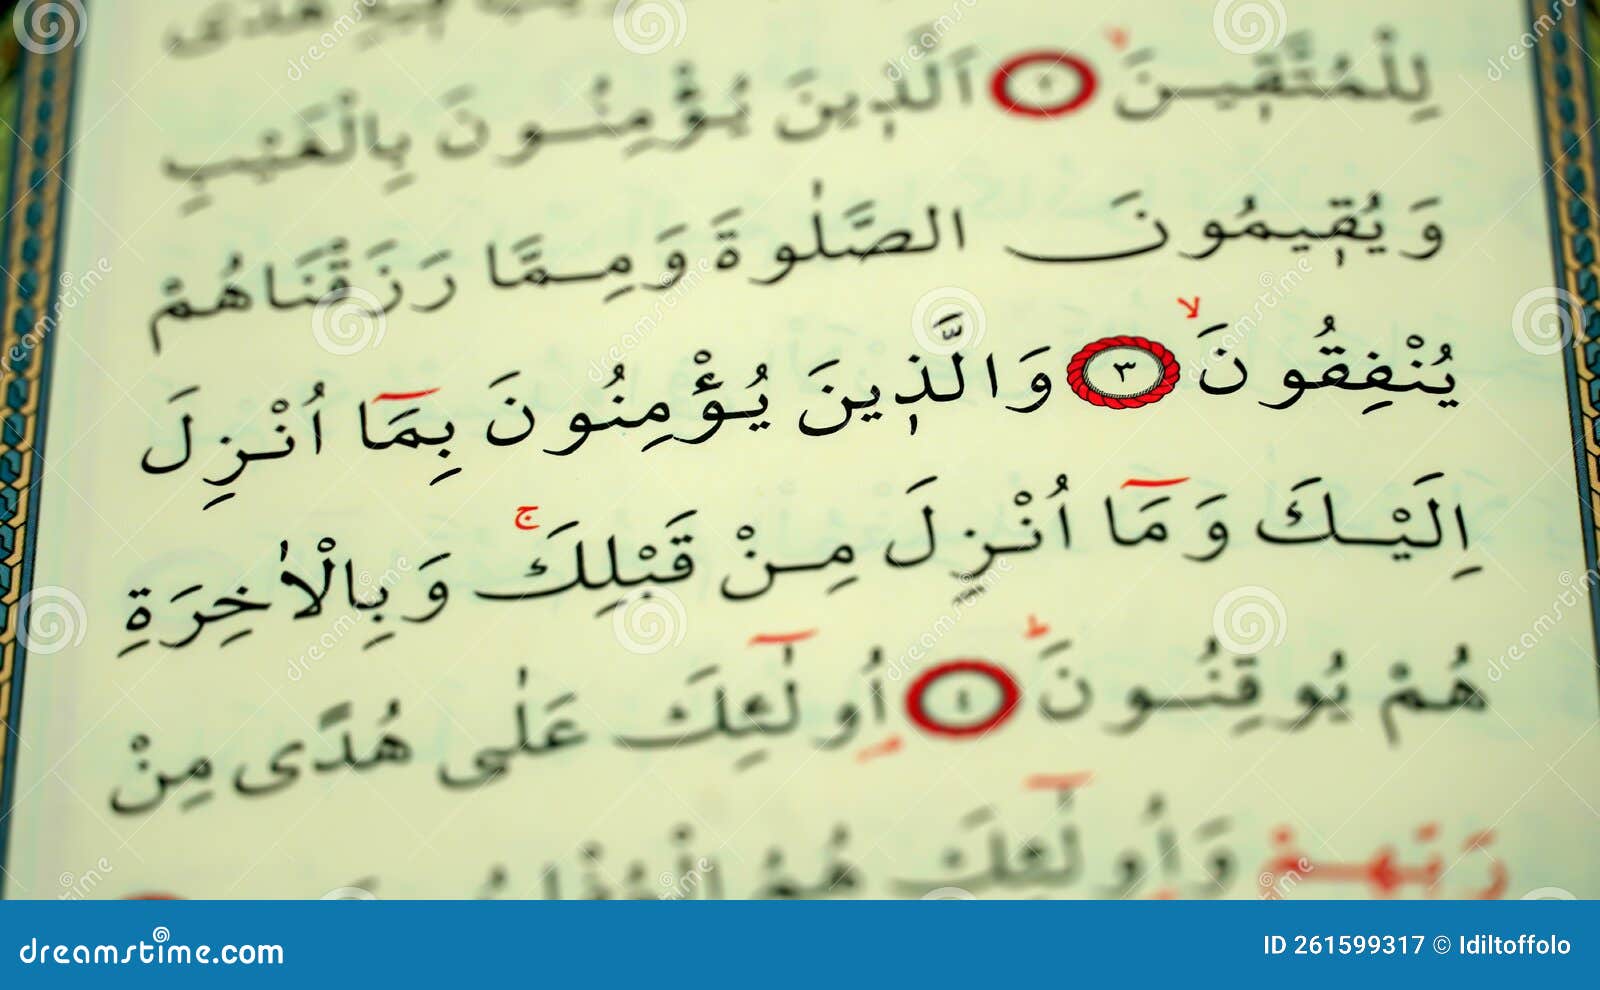 هُدًى
لِلْمُتَّق۪ينَۙ ﴿٢﴾ اَلَّذ۪ينَ يُؤْمِنُونَ بِالْغَيْبِ
وَيُق۪يمُونَ الصَّلٰوةَ وَمِمَّا رَزَقْنَاهُمْ
يُنْفِقُونَۙ ﴿٣﴾ وَالَّذ۪ينَ يُؤْمِنُونَ بِمَٓا اُنْزِلَ
اِلَيْكَ وَمَٓا اُنْزِلَ مِنْ قَبْلِكَۚ وَبِالْاٰخِرَةِ
هُمْ يُوقِنُونَۜ ﴿٤﴾ اُو۬لٰٓئِكَ عَلٰى هُدًى مِنْ
رَبِّهِمْ وَاُو۬لٰٓئِكَ هُمُ الْمُفْلِحُونَ
dreamstime.com ID 261599317 © Idiltoffolo